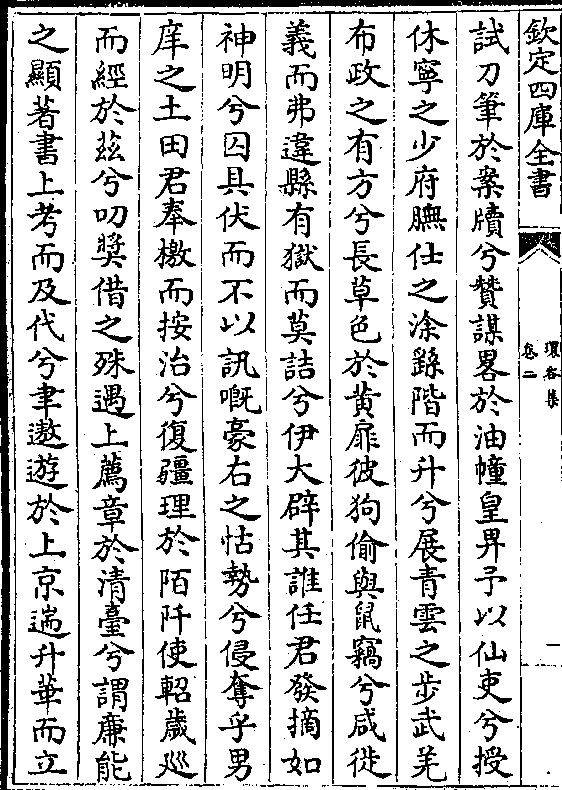 欽定四庫全書
環谷集
卷二
一
試刀筆於案牘兮贊謀畧於油幢皇畀予以仙吏兮授
休寧之少府膴仕之涂繇階而升兮展青雲之步武羌
布政之有方兮長草色於黄扉彼狗偷與鼠竊兮咸徙
義而弗違縣有獄而莫詰兮伊大辟其誰任君發摘如
神明兮囚具伏而不以訊嘅豪右之怙勢兮侵奪乎男
庠之土田君奉檄而按治兮復疆理於陌阡使軺歲巡
而經於兹兮叨奬借之殊遇上薦章於清臺兮謂廉能
之顯著書上考而及代兮聿遨遊於上京遄升華而立